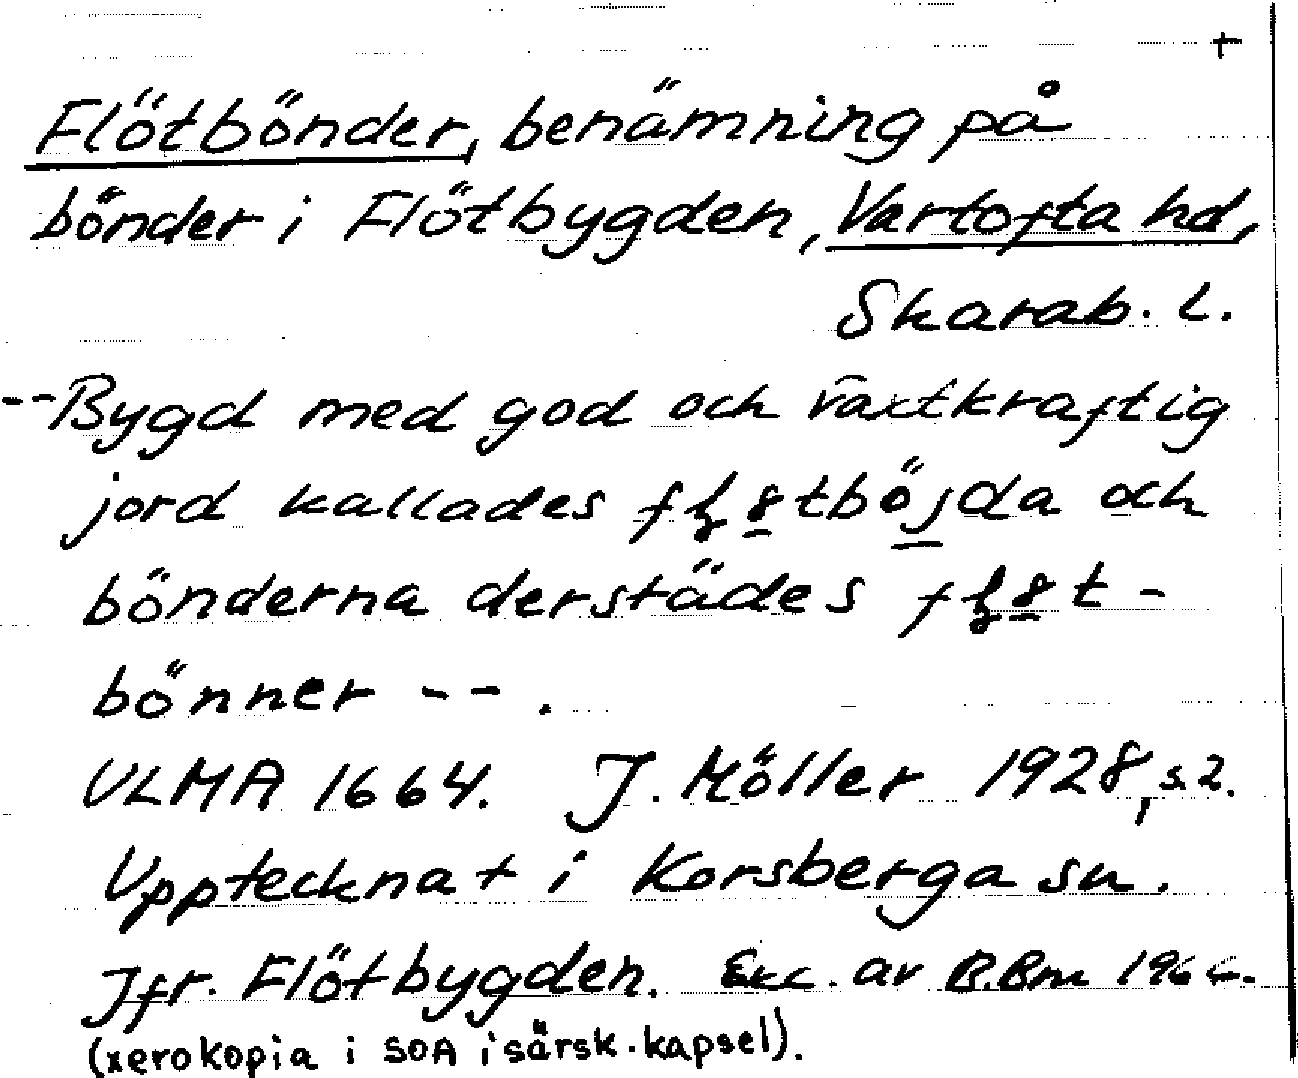 +
Flötbönder, benämning på
bönder i Flötbygden, Vartofta hd,
Skarab. l.
-- Bygd med god och växtkraftig
jord kallades tböjda och
bönderna derstädes
bönner -- .
ULMA 1664. J. Möller 1928, s. 2.
Upptecknat i Korsberga sn.
Jfr. Flötbygden. Exc. av B.Bm 1964.
(xerokopia i SOA i särsk. kapsel).